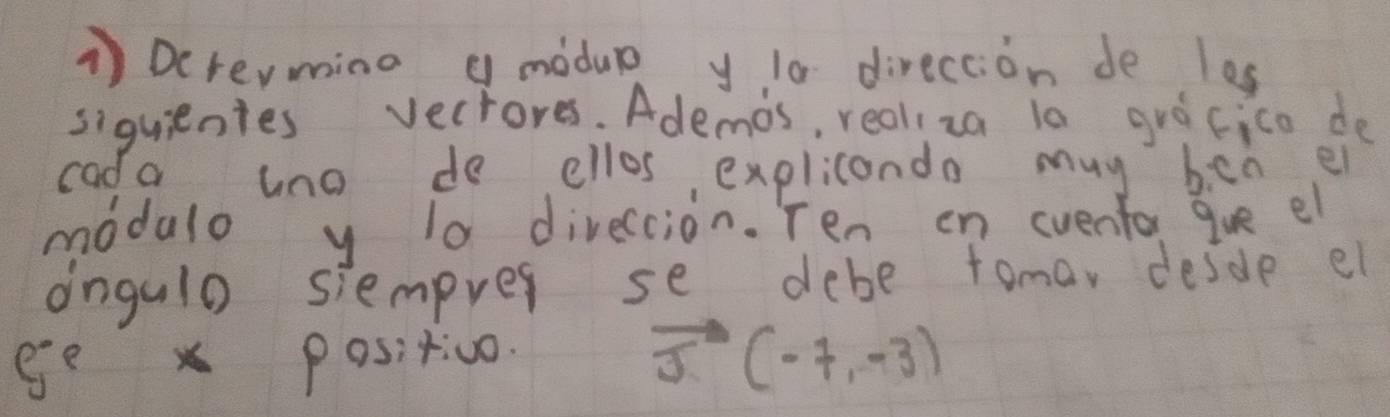 1) Determina el módulo y la dirección de los
siguientes vectores. Además, realiza la gráfico de
cada uno de ellos, explicando muy bien el
módulo y la dirección. Ten en cuenta que el
ángulo siempre se debe tomar desde el
eje x positivo. J (-7, -3)